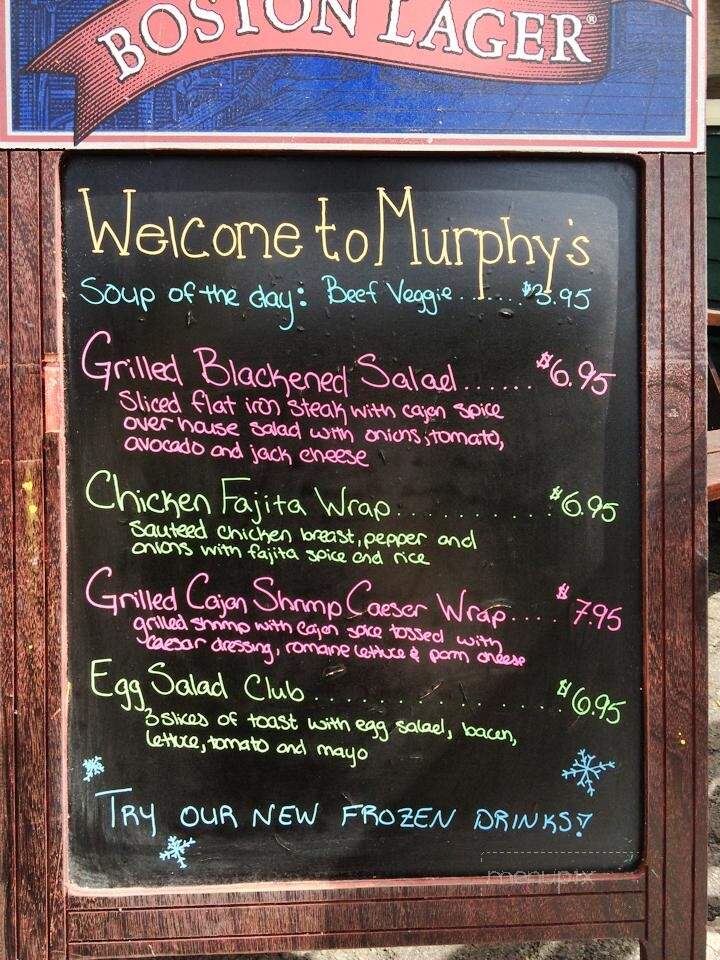 BOSTON LAGER®
Welcome to Murphy's
Soup of the day: Beef Veggie........$3.95
Grilled Blackened Salad......$6.95
Sliced flat iron steak with cajen spice
over house salad with onions, tomato,
avocado and jack cheese
Chicken Fajita Wrap............$6.95
Sauteed chicken breast, pepper and
onions with fajita spice and rice
Grilled Cajan Shrimp Caeser Wrap....$7.95
grilled shrimp with cajen spice tossed with
caesar dressing, romaine lettuce & parm cheese
Egg Salad Club ..................$6.95
3 slices of toast with egg salad, bacen,
lettuce, tomato and mayo
TRY OUR NEW FROZEN DRINKS!
menupix